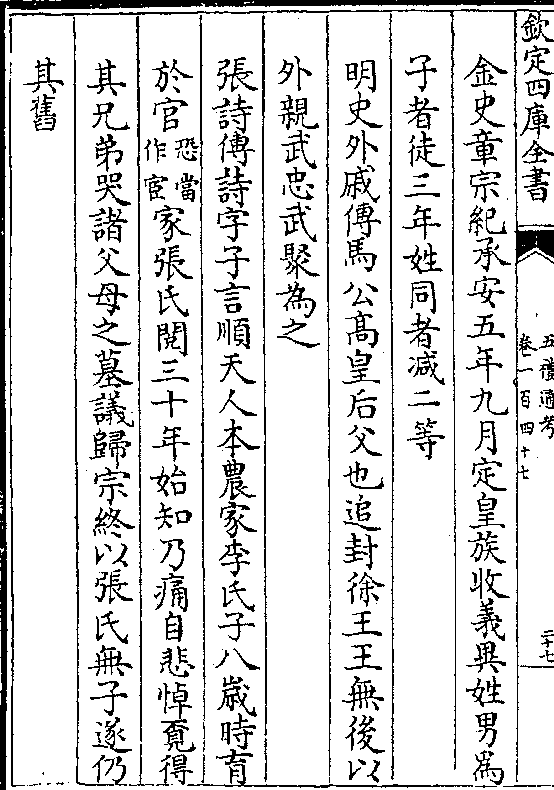 欽定四庫全書
五禮通考
卷一百四十七
二十七
金史章宗紀承安五年九月定皇族收義異姓男為
子者徒三年姓同者减二等
明史外戚傳馬公髙皇后父也追封徐王王無後以
外親武忠武聚為之
張詩傳詩字子言順天人本農家李氏子八歲時育
於官恐當作宦家張氏閱三十年始知乃痛自悲悼覔得
其兄弟哭諸父母之墓議歸宗終以張氏無子遂仍
其舊